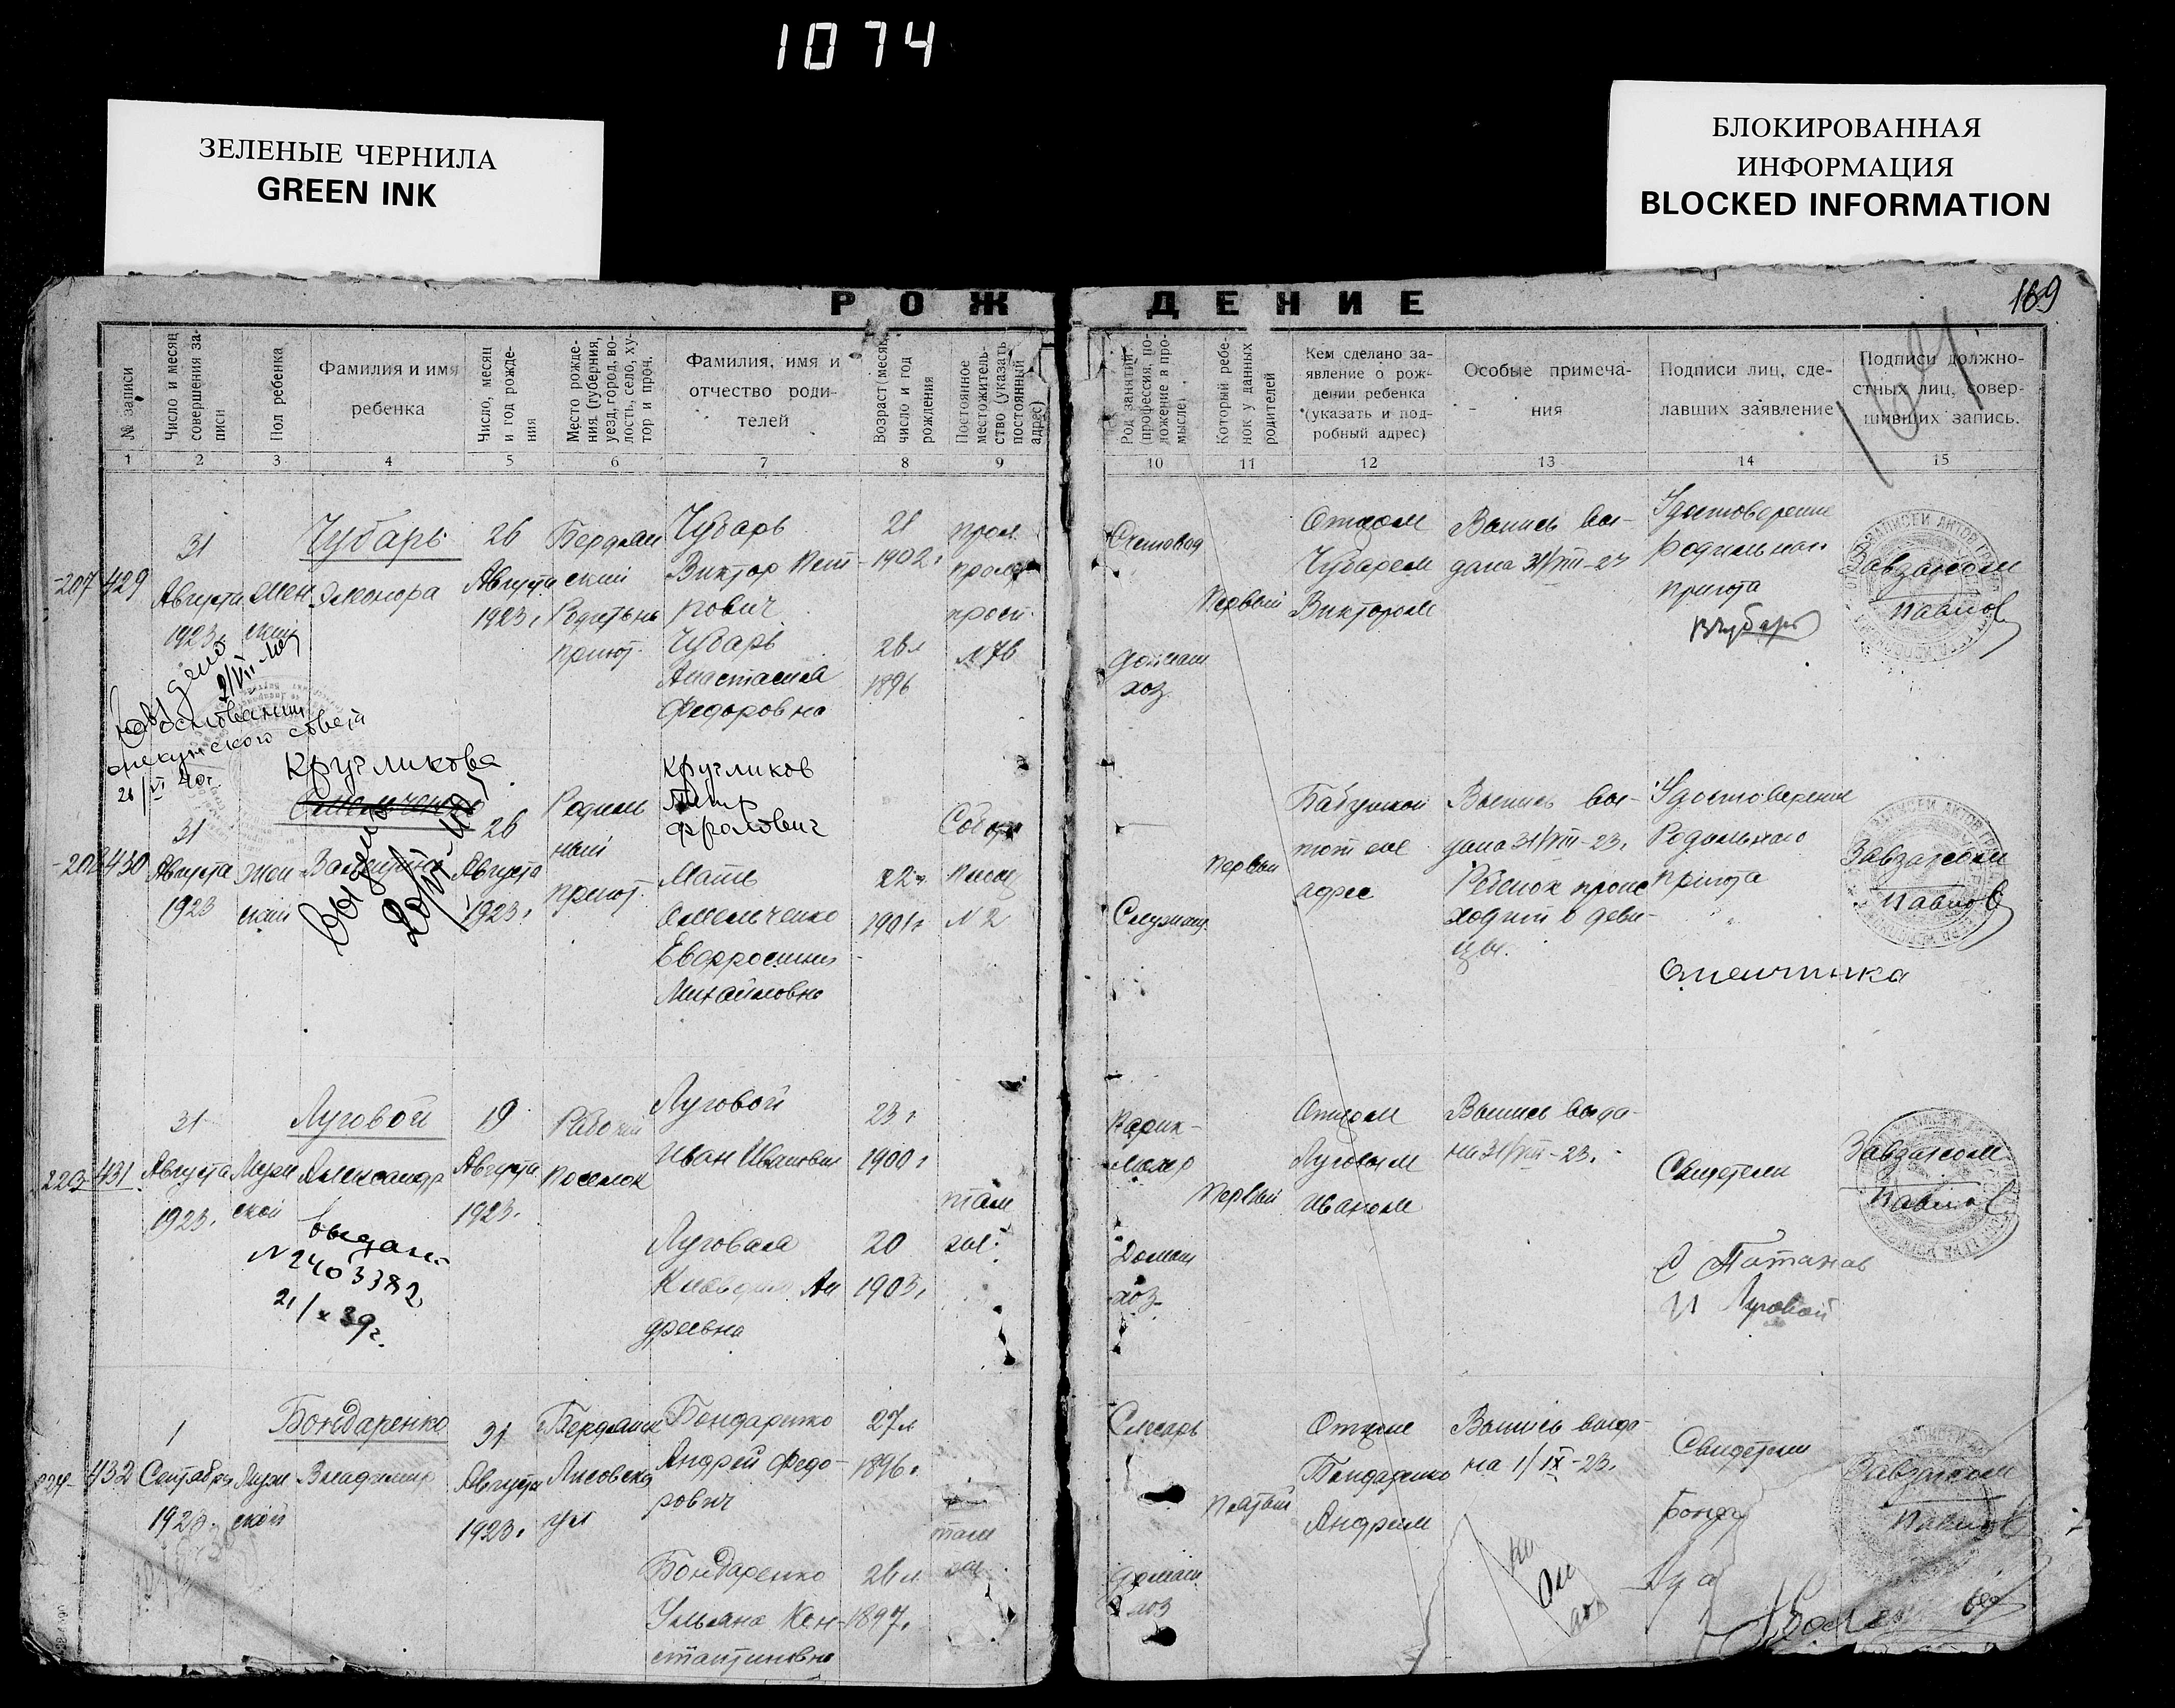 1074
ЗЕЛЕНЫЕ ЧЕРНИЛА
GREEN INK
БЛОКИРОВАННАЯ
ИНФОРМАЦИЯ
BLOCKED INFORMATION
РОЖДЕНИЕ
169
№ записи
Число и месяц
совершения за-
писи
Пол ребенка
Фамилия и имя
ребенка
Число, месяц
и год рожде-
ния
Место рожде-
ния (губерния,
уезд, город, во-
лость, село, ху-
тор и проч.
Фамилия, имя и
отчество роди-
телей
Возраст (месяц,
число и год
рождения
Постоянное
местожитель-
ство (указать
постоянный
адрес)
Род занятий
(профессия, по-
ложение в про-
мысле)
Который ребе-
нок у данных
родителей
Кем сделано за-
явление о рож-
дении ребенка
(указать и под-
робный адрес)
Особые примеча-
ния
Подписи лиц, сде-
лавших заявление
Подписи должно-
стных лиц, совер-
шивших запись.
1 2 3 4 5 6 7 8 9 10 11 12 13 14 15
207 429
31
Августа
1923г.
Жен
ский
Чубарь
Элеонора
26
Августа
1923г.
Бердян
ский
приют
Чубарь
Виктор Пет-
рович
Чубарь
Анастасия
Федоровна
21
1902г.
26л
1896
№ 76
Счетовод
домаш
хоз.
Первый
Отцом
Чубарем
Виктором
Выпись вы-
дана 31/VIII-23
Удостоверение
родильного
приюта
ВЧубарь
Завзагсом
Павлов
На основании
опекунского совета
21/VI 40г.
430
31
Августа
1923
Жен
ский
Кругликова
Омельченко
Валентина
26
Августа
1923г.
Родиль
ный
приют
Кругликов
Петр
Фролович
Мать
Омельченко
Евфросиния
Михайловна
22г.
1901г
N 2
Служащ.
Первый
Бабушкой
тот же
адрес
Выпись вы-
дана 31/VIII-23.
Ребенок проис
ходит о деви-
цы.
Удостоверение
Родильного
приюта
Завзагсом
Павлов
223 431
31
Августа
1923.
Муж
ской
Луговой
Александр
выдан
N 2403382
21/X 39г.
19
Августа
1923.
Рабочий
поселок
Луговой
Иван Иванович
Луговая
Ан
дреевна
23г
1900г
20
1903г
там
же
Парик-
махер
Домаш
хоз.
Первый
Отцом
Луговым
Иваном
Выпись выда-
на 31/VIII-23.
Свидетели
И Луговой
Завзагсом
Павлов
224 432
1
Сентября
1923.
Муж
ской
Бондаренко
Владимир
31
Августа
1923г.
Бердянск
Лисовская
ул
Бондаренко
Андрей Федо-
рович
Бондаренко
Ульяна Кон-
стантиновна
27л
1896г.
26л
1897г.
там
же
Слесарь
домаш
хоз
Пятый
Отцом
Бондаренко
Андреем
Выпись выда-
на 1/IX-23.
Свидетели
Завзагсом
Павлов